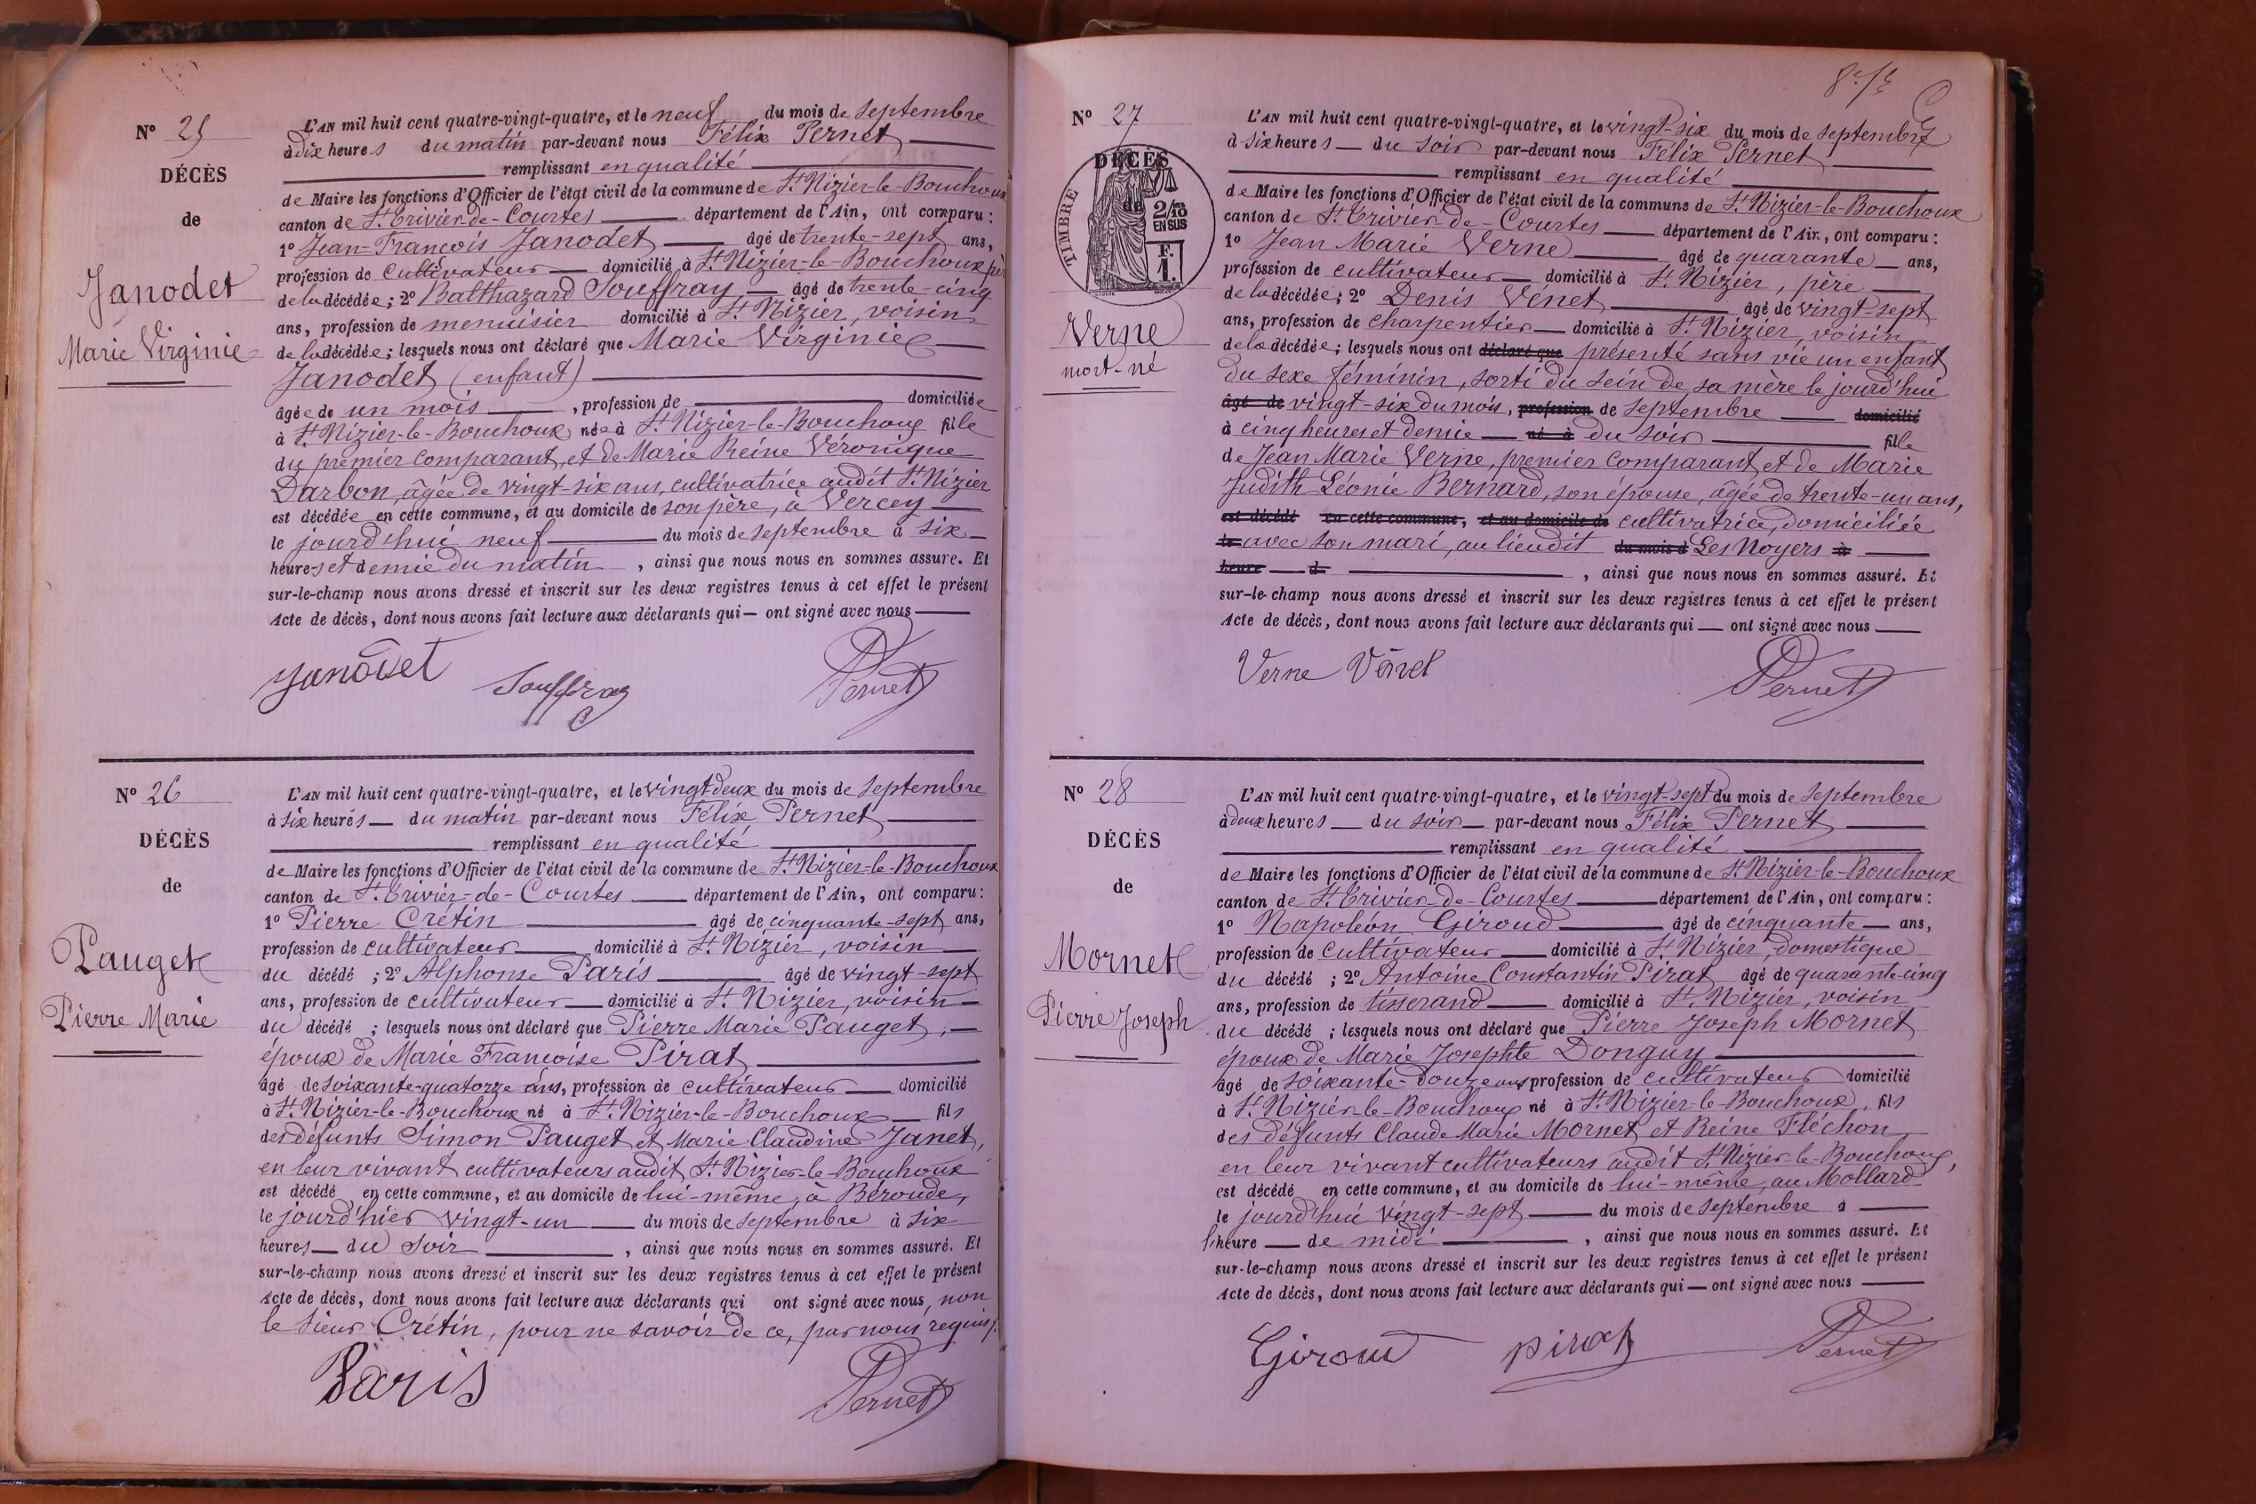 N° 25
DÉCÈS
de
Janodet
Marie Virginie
L'AN mil huit cent quatre-vingt-quatre, et le neuf du mois de septembre
à dix heures du matin par-devant nous Félix Pernet
remplissant en qualité
de Maire les fonctions d'Officier de l'état civil de la commune de St Nizier-le-Bouchoux
canton de St Trivier-de-Courtes département de l'Ain, ont comparu :
1° Jean-François Janodet âgé de trente-sept ans,
profession de cultivateur domicilié à St Nizier-le-Bouchoux, père
de la décédée ; 2° Balthazard Souffray âgé de trente-cinq
ans, profession de menuisier domicilié à St Nizier, voisin
de la décédée ; lesquels nous ont déclaré que Marie Virginie
Janodet (enfant)
âgée de un mois , profession de domiciliée
à St Nizier-le-Bouchoux née à St Nizier-le-Bouchoux fille
du premier comparant, et de Marie Reine Véronique
Darbon, âgée de vingt-six ans, cultivatrice audit St Nizier
est décédée en cette commune, et au domicile de son père, à Vercey
le jourd'hui neuf du mois de septembre à six
heures et demie du matin , ainsi que nous nous en sommes assuré. Et
sur-le-champ nous avons dressé et inscrit sur les deux registres tenus à cet effet le présent
Acte de décès, dont nous avons fait lecture aux déclarants qui ont signé avec nous
Janodet Souffray Pernet
N° 26
DÉCÈS
de
Pauget
Pierre Marie
L'AN mil huit cent quatre-vingt-quatre, et le vingt deux du mois de septembre
à six heures du matin par-devant nous Félix Pernet
remplissant en qualité
de Maire les fonctions d'Officier de l'état civil de la commune de St Nizier-le-Bouchoux
canton de St Trivier-de-Courtes département de l'Ain, ont comparu :
1° Pierre Crétin âgé de cinquante-sept ans,
profession de cultivateur domicilié à St Nizier, voisin
du décédé ; 2° Alphonse Paris âgé de vingt-sept
ans, profession de cultivateur domicilié à St Nizier, voisin
du décédé ; lesquels nous ont déclaré que Pierre Marie Pauget,
époux de Marie Françoise Pirat
âgé de soixante-quatorze ans, profession de cultivateur domicilié
à St Nizier-le-Bouchoux né à St Nizier-le-Bouchoux fils
des défunts Simon Pauget et Marie Claudine Janet,
en leur vivant cultivateurs audit St Nizier-le-Bouchoux
est décédé en cette commune, et au domicile de lui-même, à Béroude,
le jourd'hier vingt-un du mois de septembre à six
heures du soir , ainsi que nous nous en sommes assuré. Et
sur-le-champ nous avons dressé et inscrit sur les deux registres tenus à cet effet le présent
Acte de décès, dont nous avons fait lecture aux déclarants qui ont signé avec nous, non
le sieur Crétin, pour ne savoir de ce, par nous requis.
Paris Pernet
N° 27
DÉCÈS
de
TIMBRE
2/10 EN SUS
F. 1.
Verne
mort-né
L'AN mil huit cent quatre-vingt-quatre, et le vingt-six du mois de septembre
à six heures du soir par-devant nous Félix Pernet
remplissant en qualité
de Maire les fonctions d'Officier de l'état civil de la commune de St Nizier-le-Bouchoux
canton de St Trivier-de-Courtes département de l'Ain, ont comparu :
1° Jean Marie Verne âgé de quarante ans,
profession de cultivateur domicilié à St Nizier, père
de la décédée ; 2° Denis Vénet âgé de vingt-sept
ans, profession de charpentier domicilié à St Nizier, voisin
de la décédée ; lesquels nous ont déclaré que présenté sans vie un enfant
du sexe féminin, sorti du sein de sa mère le jourd'hui
âgé de vingt-six du mois, profession de septembre domicilié
à cinq heures et demie né à du soir fille
de Jean Marie Verne, premier comparant, et de Marie
Judith Léonie Bernard, son épouse, âgée de trente-un ans,
est décédé en cette commune, et au domicile de cultivatrice, domiciliée
le avec son mari, au lieudit du mois d Les Noyers à
heure d , ainsi que nous nous en sommes assuré. Et
sur-le-champ nous avons dressé et inscrit sur les deux registres tenus à cet effet le présent
Acte de décès, dont nous avons fait lecture aux déclarants qui ont signé avec nous
Verne Vénet Pernet
N° 28
DÉCÈS
de
Mornet
Pierre Joseph
L'AN mil huit cent quatre-vingt-quatre, et le vingt-sept du mois de septembre
à deux heures du soir par-devant nous Félix Pernet
remplissant en qualité
de Maire les fonctions d'Officier de l'état civil de la commune de St Nizier-le-Bouchoux
canton de St Trivier-de-Courtes département de l'Ain, ont comparu :
1° Napoléon Giroud âgé de cinquante ans,
profession de cultivateur domicilié à St Nizier, domestique
du décédé ; 2° Antoine Constantin Pirat âgé de quarante-cinq
ans, profession de tisserand domicilié à St Nizier, voisin
du décédé ; lesquels nous ont déclaré que Pierre Joseph Mornet
époux de Marie Josephte Donguy
âgé de soixante-douze ans profession de cultivateur domicilié
à St Nizier-le-Bouchoux né à St Nizier-le-Bouchoux, fils
des défunts Claude Marie Mornet et Reine Fléchon,
en leur vivant cultivateurs audit St Nizier-le-Bouchoux,
est décédé en cette commune, et au domicile de lui-même, au Mollard
le jourd'hui vingt-sept du mois de septembre à
l'heure de midi , ainsi que nous nous en sommes assuré. Et
sur-le-champ nous avons dressé et inscrit sur les deux registres tenus à cet effet le présent
Acte de décès, dont nous avons fait lecture aux déclarants qui ont signé avec nous
Giroud Pirat Pernet